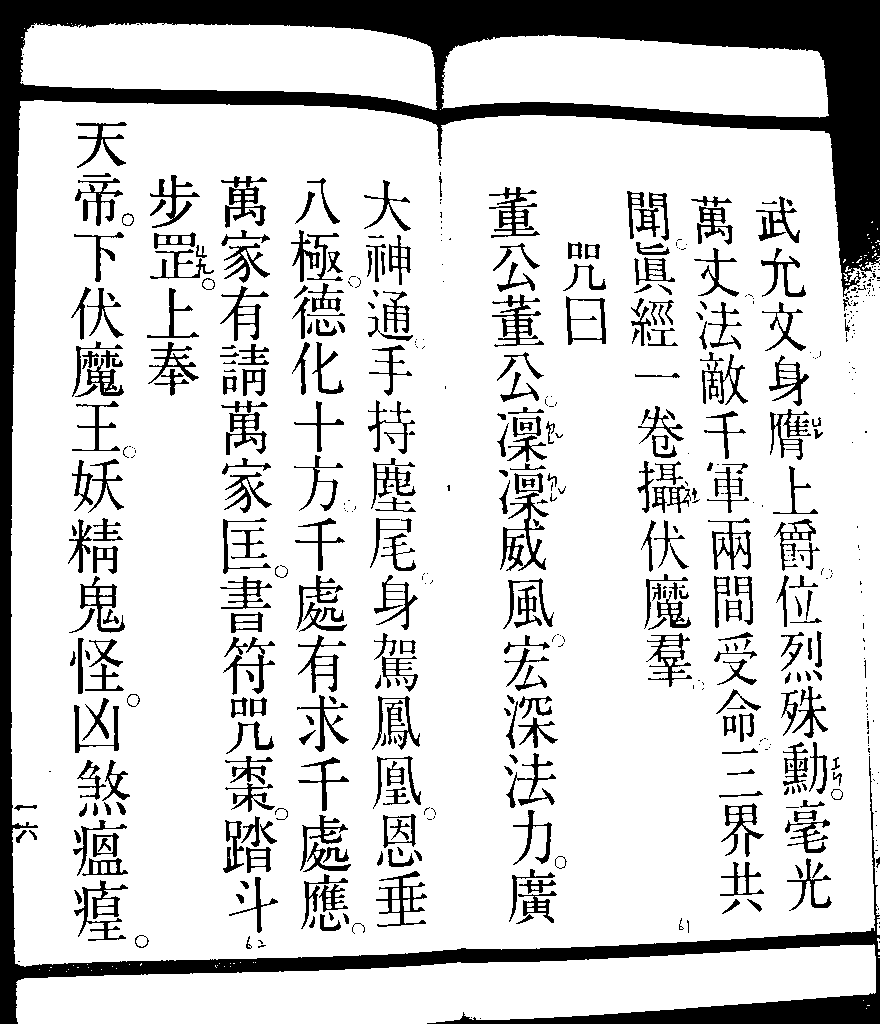 武允文。身膺上爵。位烈殊勳。毫光
萬丈。法敵千軍。兩間受命。三界共
聞。眞經一卷。攝伏魔羣。
咒曰
董公董公。凜凜威風。宏深法力。廣
大神通。手持塵尾。身駕鳳凰。恩垂
八極。德化十方。千處有求千處應。
萬家有請萬家匡。書符咒棗。踏斗
步罡。上奉
天帝。下伏魔王。妖精鬼怪。凶煞瘟瘟。
一六
61
62